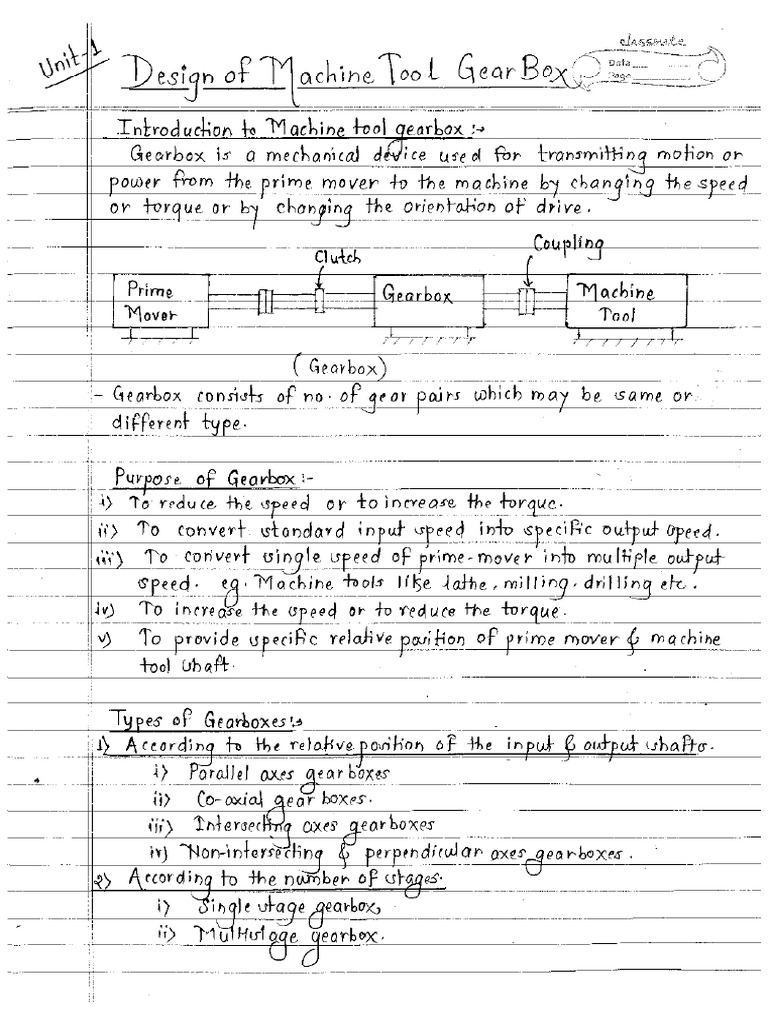 Unit-1
Design of Machine Tool Gear Box
classmate
Date
Page
Introduction to Machine tool gearbox :→
Gearbox is a mechanical device used for transmitting motion or
power from the prime mover to the machine by changing the speed
or torque or by changing the orientation of drive.
Clutch
Coupling
Prime
Mover
Gearbox
Machine
Tool
(Gearbox)
- Gearbox consists of no. of gear pairs which may be same or
different type.
Purpose of Gearbox :-
i) To reduce the speed or to increase the torque.
ii) To convert standard input speed into specific output speed.
iii) To convert single speed of prime-mover into multiple output
speed. eg. Machine tools like lathe, milling, drilling etc.
iv) To increase the speed or to reduce the torque.
v) To provide specific relative position of prime mover & machine
tool shaft.
Types of Gearboxes :→
1) According to the relative position of the input & output shafts.
i) Parallel axes gearboxes
ii) Co-axial gear boxes.
iii) Intersecting axes gearboxes
iv) Non-intersecting & perpendicular axes gearboxes.
2) According to the number of stages.
i) Single stage gearbox,
ii) Multistage gearbox.